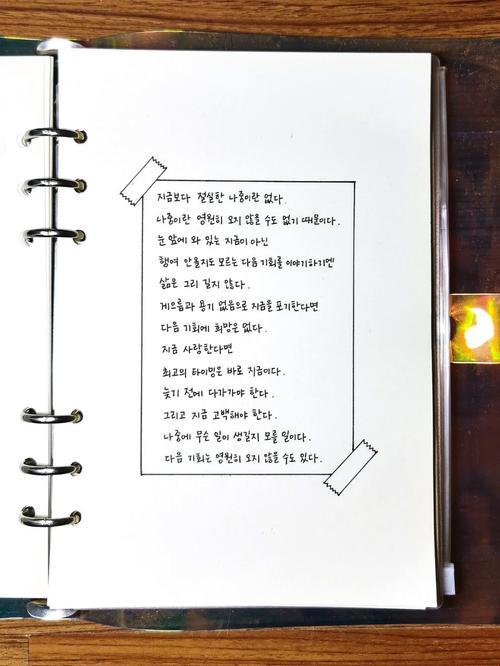 지금보다 절실한 나중이란 없다.
나중이란 영원히 오지 않을 수도 있기 때문이다.
눈 앞에 와 있는 지금이 아닌
행여 안올지도 모르는 다음 기회를 이야기하기엔
삶은 그리 길지 않다.
게으름과 용기 없음으로 지금을 포기한다면
다음 기회에 희망은 없다.
지금 사랑한다면
최고의 타이밍은 바로 지금이다.
늦기 전에 다가가야 한다.
그리고 지금 고백해야 한다.
나중에 무슨 일이 생길지 모를 일이다.
다음 기회는 영원히 오지 않을 수도 있다.